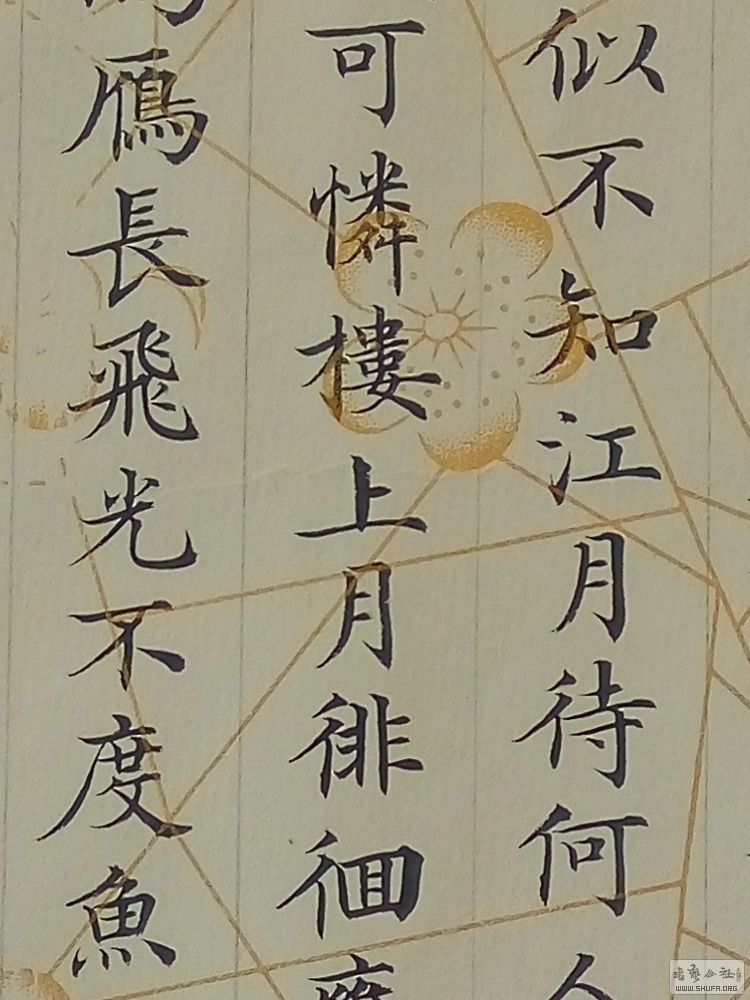 似不知江月待何人
可憐樓上月徘徊
鴈長飛光不度魚
WWW.SHUFA.ORG